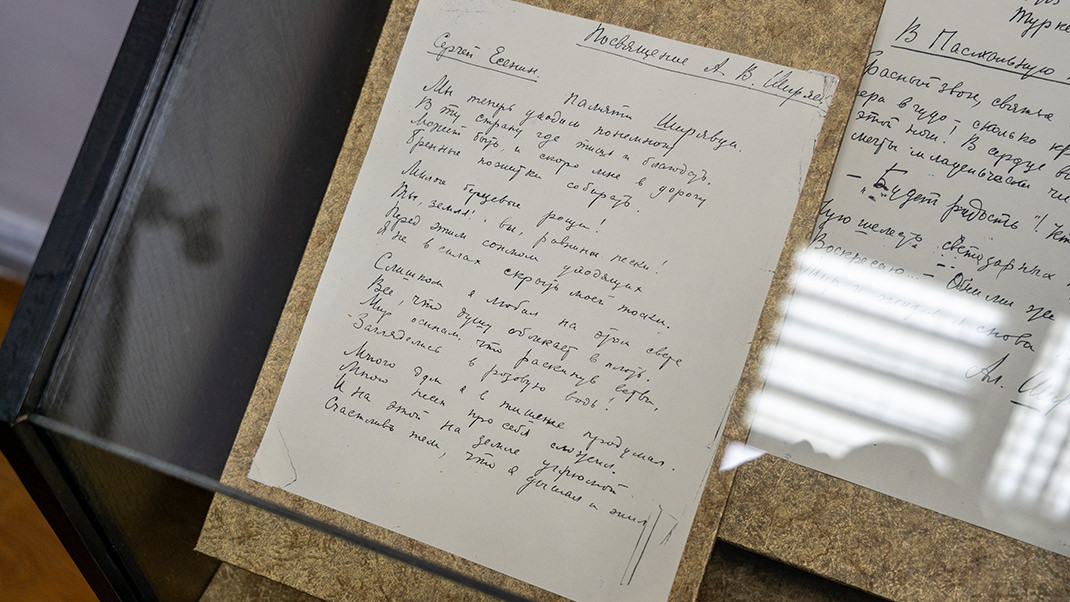 Посвящение А. В. Ширяев
Сергей Есенин.
Памяти Ширявца.
Мы теперь уходим понемногу
В ту страну где тишь и благодать.
Может быть и скоро мне в дорогу
Бренные пожитки собирать.
Милые березовые рощи!
Ты, земля! вы, равнины пески!
Перед этим сонмом уходящих
Я не в силах скрыть моей тоски.
Слишком я любил на этом свете
Все, что душу облекает в плоть.
Мир осинам, что раскинув ветви,
Загляделись в розовую водь!
Много дум я в тишине продумал.
Много песен про себя сложил.
И на этой на земле угрюмой
Счастлив тем, что я дышал и жил
Турке
В Пасхальную
расный звон, святые
ера в чудо - сколько кр
этой ночи! В сердце
мечты младенчески чи
- "Будет радость"!
ую шелесть светозарных
Воскресаю - Обними же
снова
Ал. Ширя